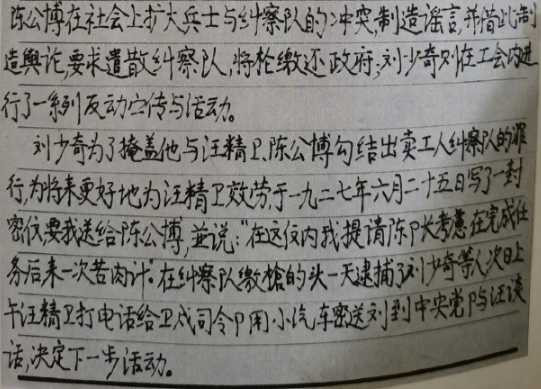 陈公博在社会上扩大兵士与纠察队的冲突,制造谣言,并借此制
造舆论,要求遣散纠察队,将枪缴还政府,刘少奇则在工会内进
行了一系列反动宣传与活动。
刘少奇为了掩盖他与汪精卫、陈公博勾结出卖工人纠察队的罪
行,为将来更好地为汪精卫效劳,于一九二七年六月二十五日写了一封
密信要我送给陈公博,並说:"在这信内我提请陈P长考虑在完成任
务后来一次苦肉计"。在纠察队缴槍的头一天逮捕了刘少奇等人次日上
午汪精卫打电话给卫戍司令P用小汽车密送刘到中央党P与汪谈
话,决定下一步活动。